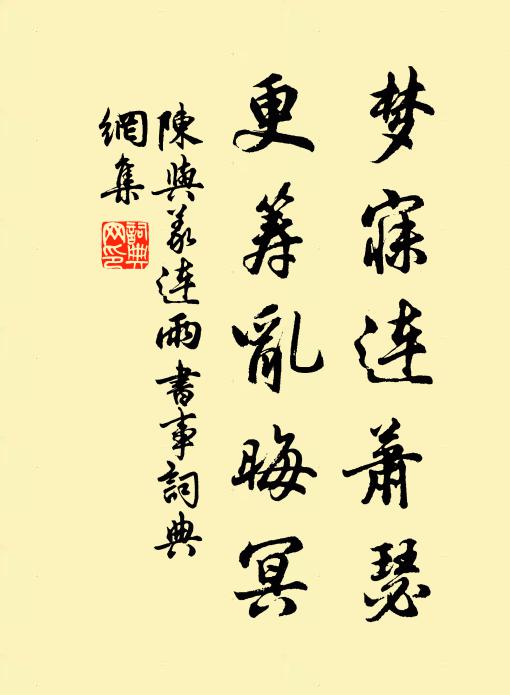 梦寐连萧瑟
更筹亂晦冥
陳與義连雨書事詞典
網集
詞典
网印